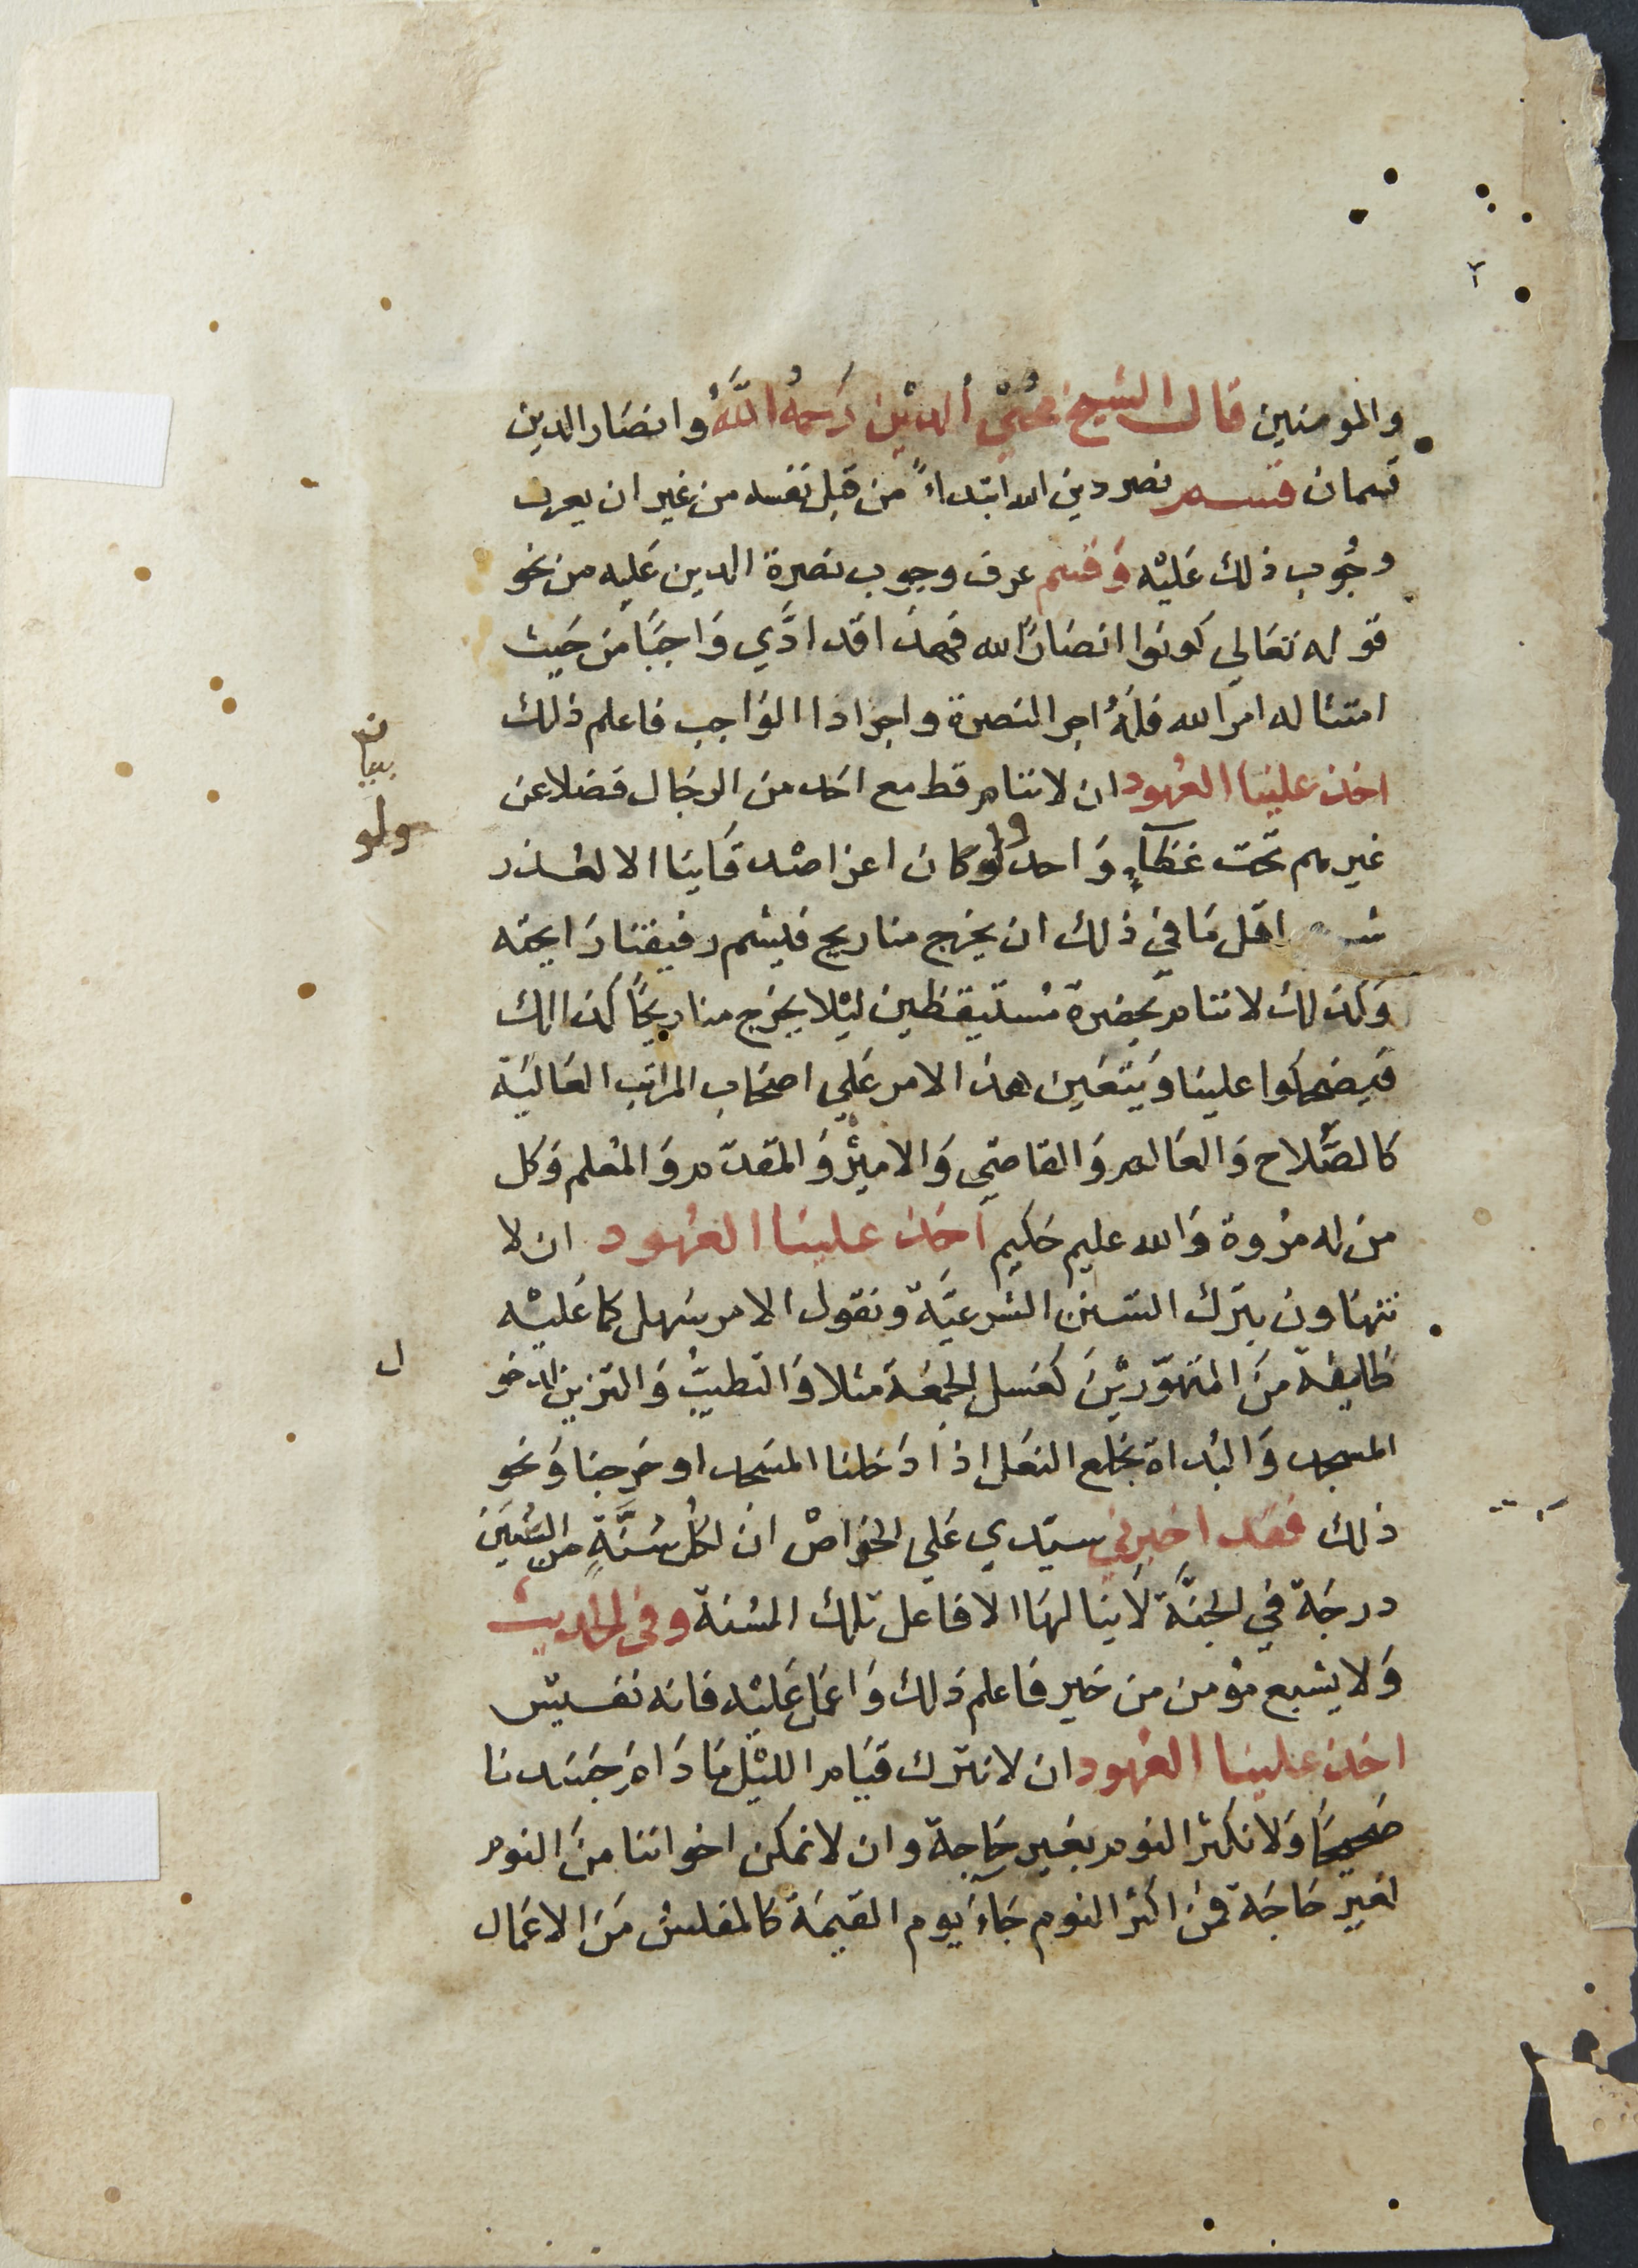 ٢
والمومنين قال الشيخ محُيّي الديْن رَحمهُ اللَّهُ وانصَار الدين
قسمان قسم نصر دين الله ابتداءً من قبل نفسه من غير ان يعرف
وجُوب ذلك عَليْه وَقسم عرف وجوب نصرة الدين عَليه من نحو
قوله تعَالي كونوا انصَارًا لله فهذَا قد ادَّي وَاجبًا من حَيث
امتثاله امر الله فلهُ اجر النصرة واجر ادا الوَاجب فاعلم ذلك
اخذ علينا العُهود ان لا ننام قط مع احَد من الرجَال فضلا عن
غيرهم تحت غطَآءٍ وَاحد ولو كان اعز اصْدقَاينا الا لعُذر
اقل مَا في ذلك ان يخرج منا ريح فيشم رفيقنا رَايحته
وَكذلك لا ننام بحضرة مُستَيقظين ليْلا يخرج منا ريحًا كذالك
فيَضحكوا علينا وَيَتعَين هذا الامر عَلي اصحَاب المراتب العَاليَة
كالصُّلاح وَالعَالم وَالقاضِي وَالاميْر وَالمقدّم وَالمعُلم وَكل
من له مرُوة وَالله عليم حَكيم اخذ علينا العُهود ان لا
نتهَاون بترك السّنن الشرعيَّة ونقول الامر سَهل كما عَليْه
طَايفة منَ المتهوّريْنَ كغسل الجمعَة مثلا وَالتطيبُّ وَالتزين لدخو
المسجد وَالبُداة بخلع النعَل اذا دَخلنا المسَجد او خرجنا وَنحو
ذلك فقد اخبرني سيّدي عَلي الخوَاصْ ان لكُل سُنَّةٍ من السُنَن
درجَة في الجنَّة لَا ينَالهَا الا فاعل تلك السُنة وفي الحديث
وَلا يشبع مؤمن من خير فَاعلم ذَلك وَاعمَل عَليْه فانه نفسيْس
اخذ علينا العُهود ان لا نترك قيَام الليْل مَا دَام جَسَدنا
صَحيحًا وَلا نكثر النوم بغير حَاجة وان لا نمكن اخواننا منَ النوم
لغير حَاجَة فمن اكثر النوم جَاءَ يوم القيمَة كالمفلسْ مَن الاعمَال
ن
بيا
ولو
ل